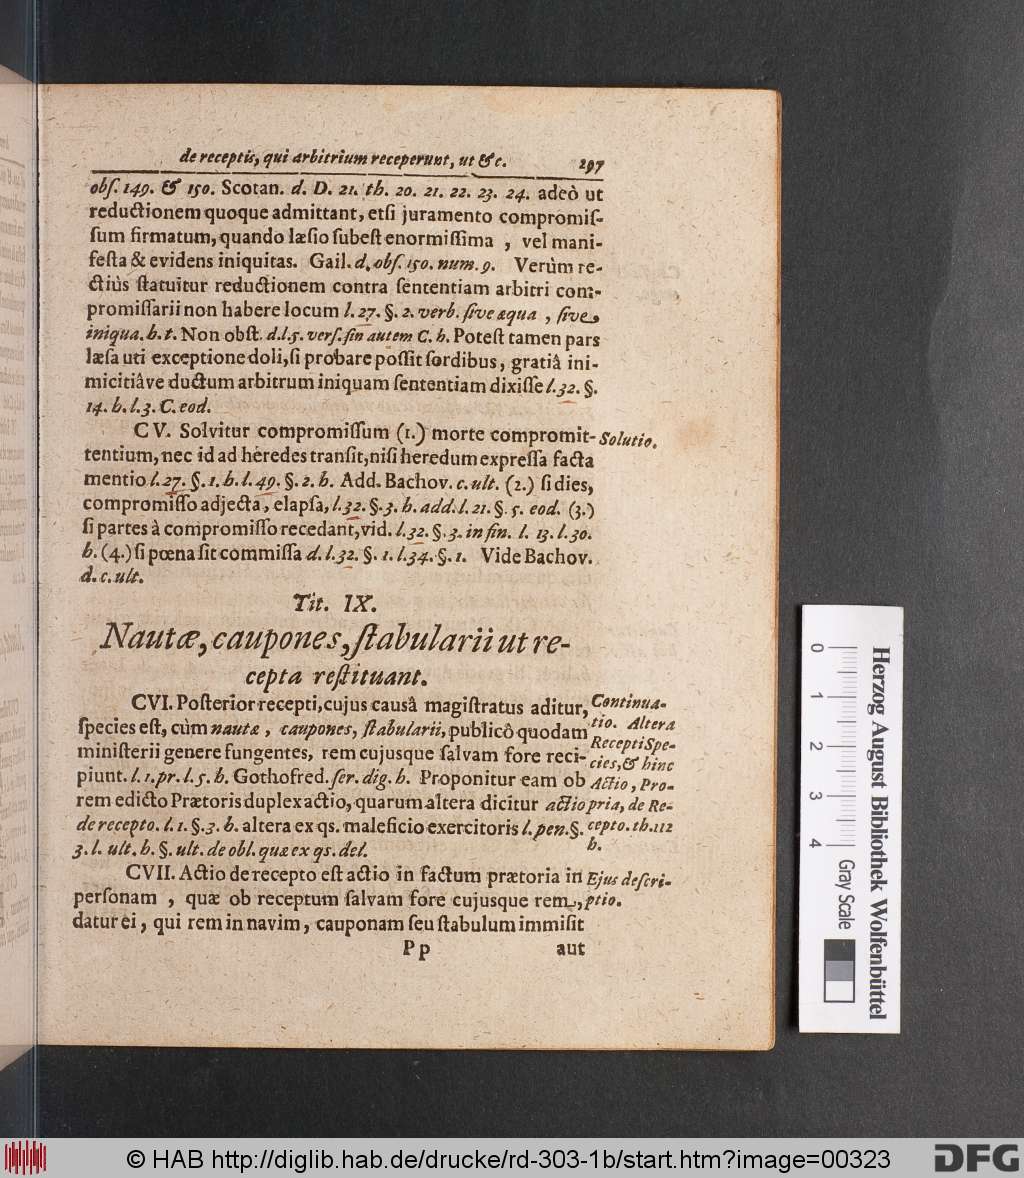 de receptis, qui arbitrium receperunt, ut &c. 297
obſ. 149. & 150. Scotan. d. D. 21. th. 20. 21. 22. 23. 24. adeò ut
reductionem quoque admittant, etſi juramento compromiſ-
ſum firmatum, quando læſio ſubeſt enormiſſima, vel mani-
feſta & evidens iniquitas. Gail. d. obſ. 150. num. 9. Verùm re-
ctiùs ſtatuitur reductionem contra ſententiam arbitri com-
promiſſarii non habere locum l. 27. §. 2. verb. ſive æqua, ſive
iniqua. h. t. Non obſt. d. l. 5. verſ. ſin autem C. h. Poteſt tamen pars
læſa uti exceptione doli, ſi probare poſſit ſordibus, gratiâ ini-
micitiâve ductum arbitrum iniquam ſententiam dixiſſe l. 32. §.
14. h. l. 3. C. eod.
CV. Solvitur compromiſſum (1.) morte compromit-
Solutio.
tentium, nec id ad heredes tranſit, niſi heredum expreſſa facta
mentio l. 27. §. 1. h. l. 49. §. 2. h. Add. Bachov. c. ult. (2.) ſi dies,
compromiſſo adjecta, elapſa, l. 32. §. 3. h. add. l. 21. §. 5. eod. (3.)
ſi partes à compromiſſo recedant, vid. l. 32. §. 3. in fin. l. 13. l. 30.
h. (4.) ſi pœna ſit commiſſa d. l. 32. §. 1. l. 34. §. 1. Vide Bachov.
d. c. ult.
Tit. IX.
Nautæ, caupones, ſtabularii ut re-
cepta reſtituant.
CVI. Poſterior recepti, cujus causâ magiſtratus aditur,
ſpecies eſt, cùm nautæ, caupones, ſtabularii, publicô quodam
miniſterii genere fungentes, rem cujusque ſalvam fore reci-
piunt. l. 1. pr. l. 5. h. Gothofred. ſer. dig. h. Proponitur eam ob
rem edicto Prætoris duplex actio, quarum altera dicitur actio
de recepto. l. 1. §. 3. h. altera ex qs. maleficio exercitoris l. pen. §.
3. l. ult. h. §. ult. de obl. quæ ex qs. del.
Continua-
tio. Altera
Recepti Spe-
cies, & hinc
Actio, Pro-
pria, de Re-
cepto. th. 112
h.
CVII. Actio de recepto eſt actio in factum prætoria in
perſonam, quæ ob receptum ſalvam fore cujusque rem,
datur ei, qui rem in navim, cauponam ſeu ſtabulum immiſit
Ejus deſcri-
ptio.
Pp aut
0 1 2 3 4
Herzog August Bibliothek Wolfenbüttel
Gray Scale
© HAB http://diglib.hab.de/drucke/rd-303-1b/start.htm?image=00323
DFG